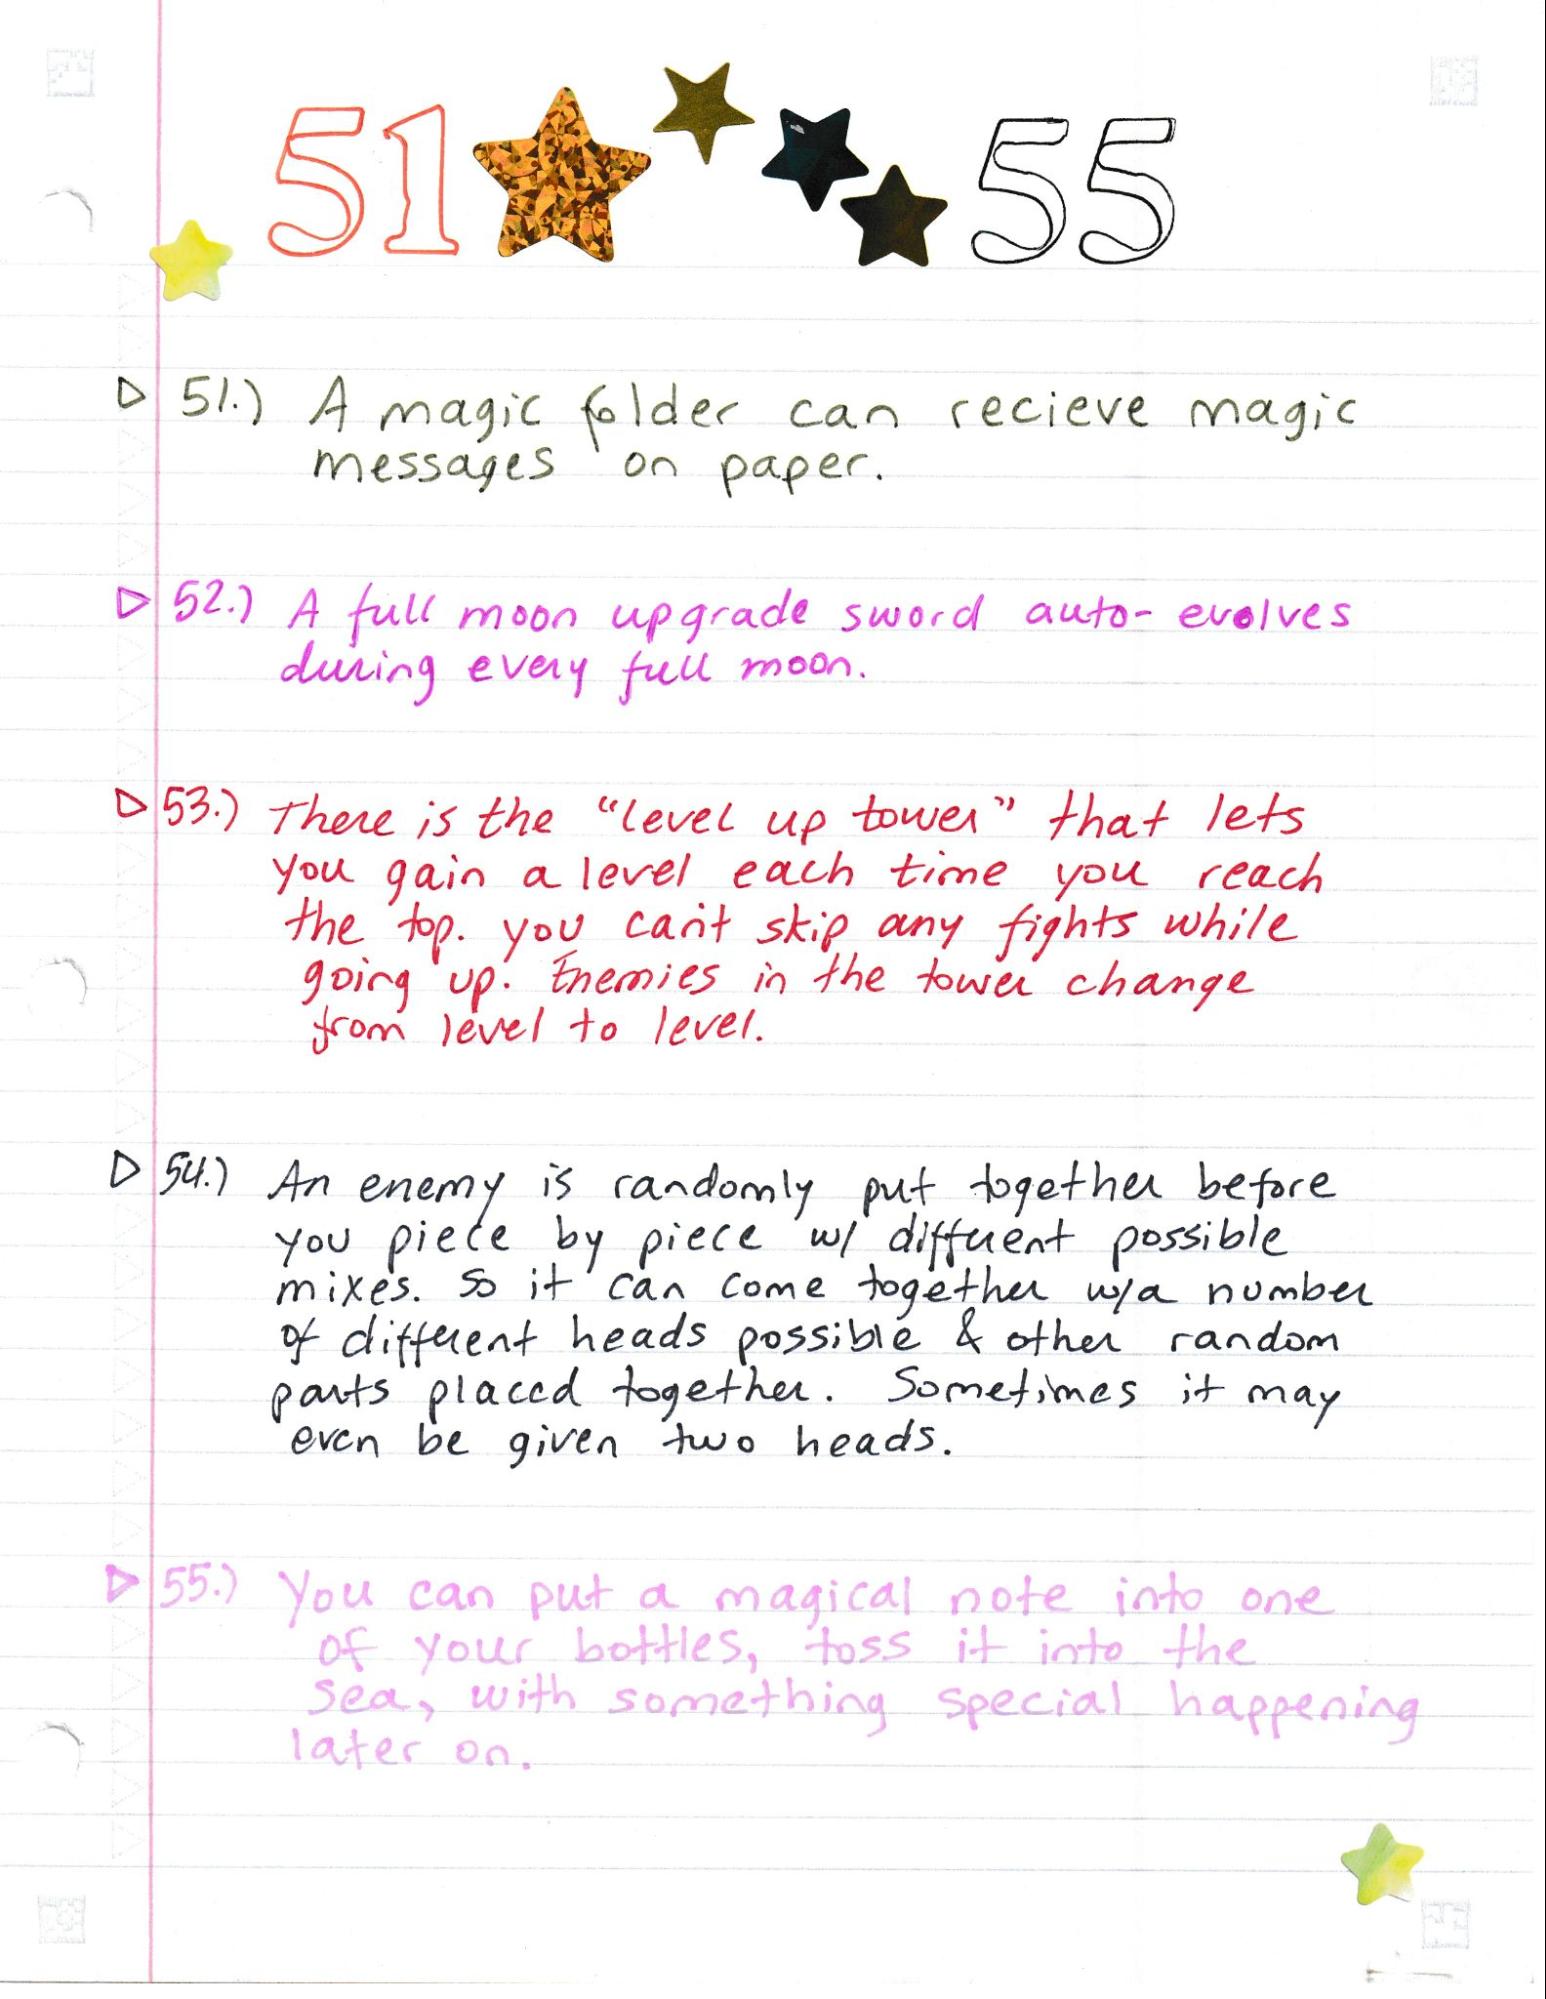 51 55
▷ 51.) A magic folder can recieve magic
messages on paper.
▷ 52.) A full moon upgrade sword auto-evolves
during every full moon.
▷ 53.) There is the “level up tower” that lets
you gain a level each time you reach
the top. you can't skip any fights while
going up. Enemies in the tower change
from level to level.
▷ 54.) An enemy is randomly put together before
you piece by piece w/ different possible
mixes. So it can come together w/a number
of different heads possible & other random
parts placed together. Sometimes it may
even be given two heads.
▷ 55.) You can put a magical note into one
of your bottles, toss it into the
sea, with something special happening
later on.